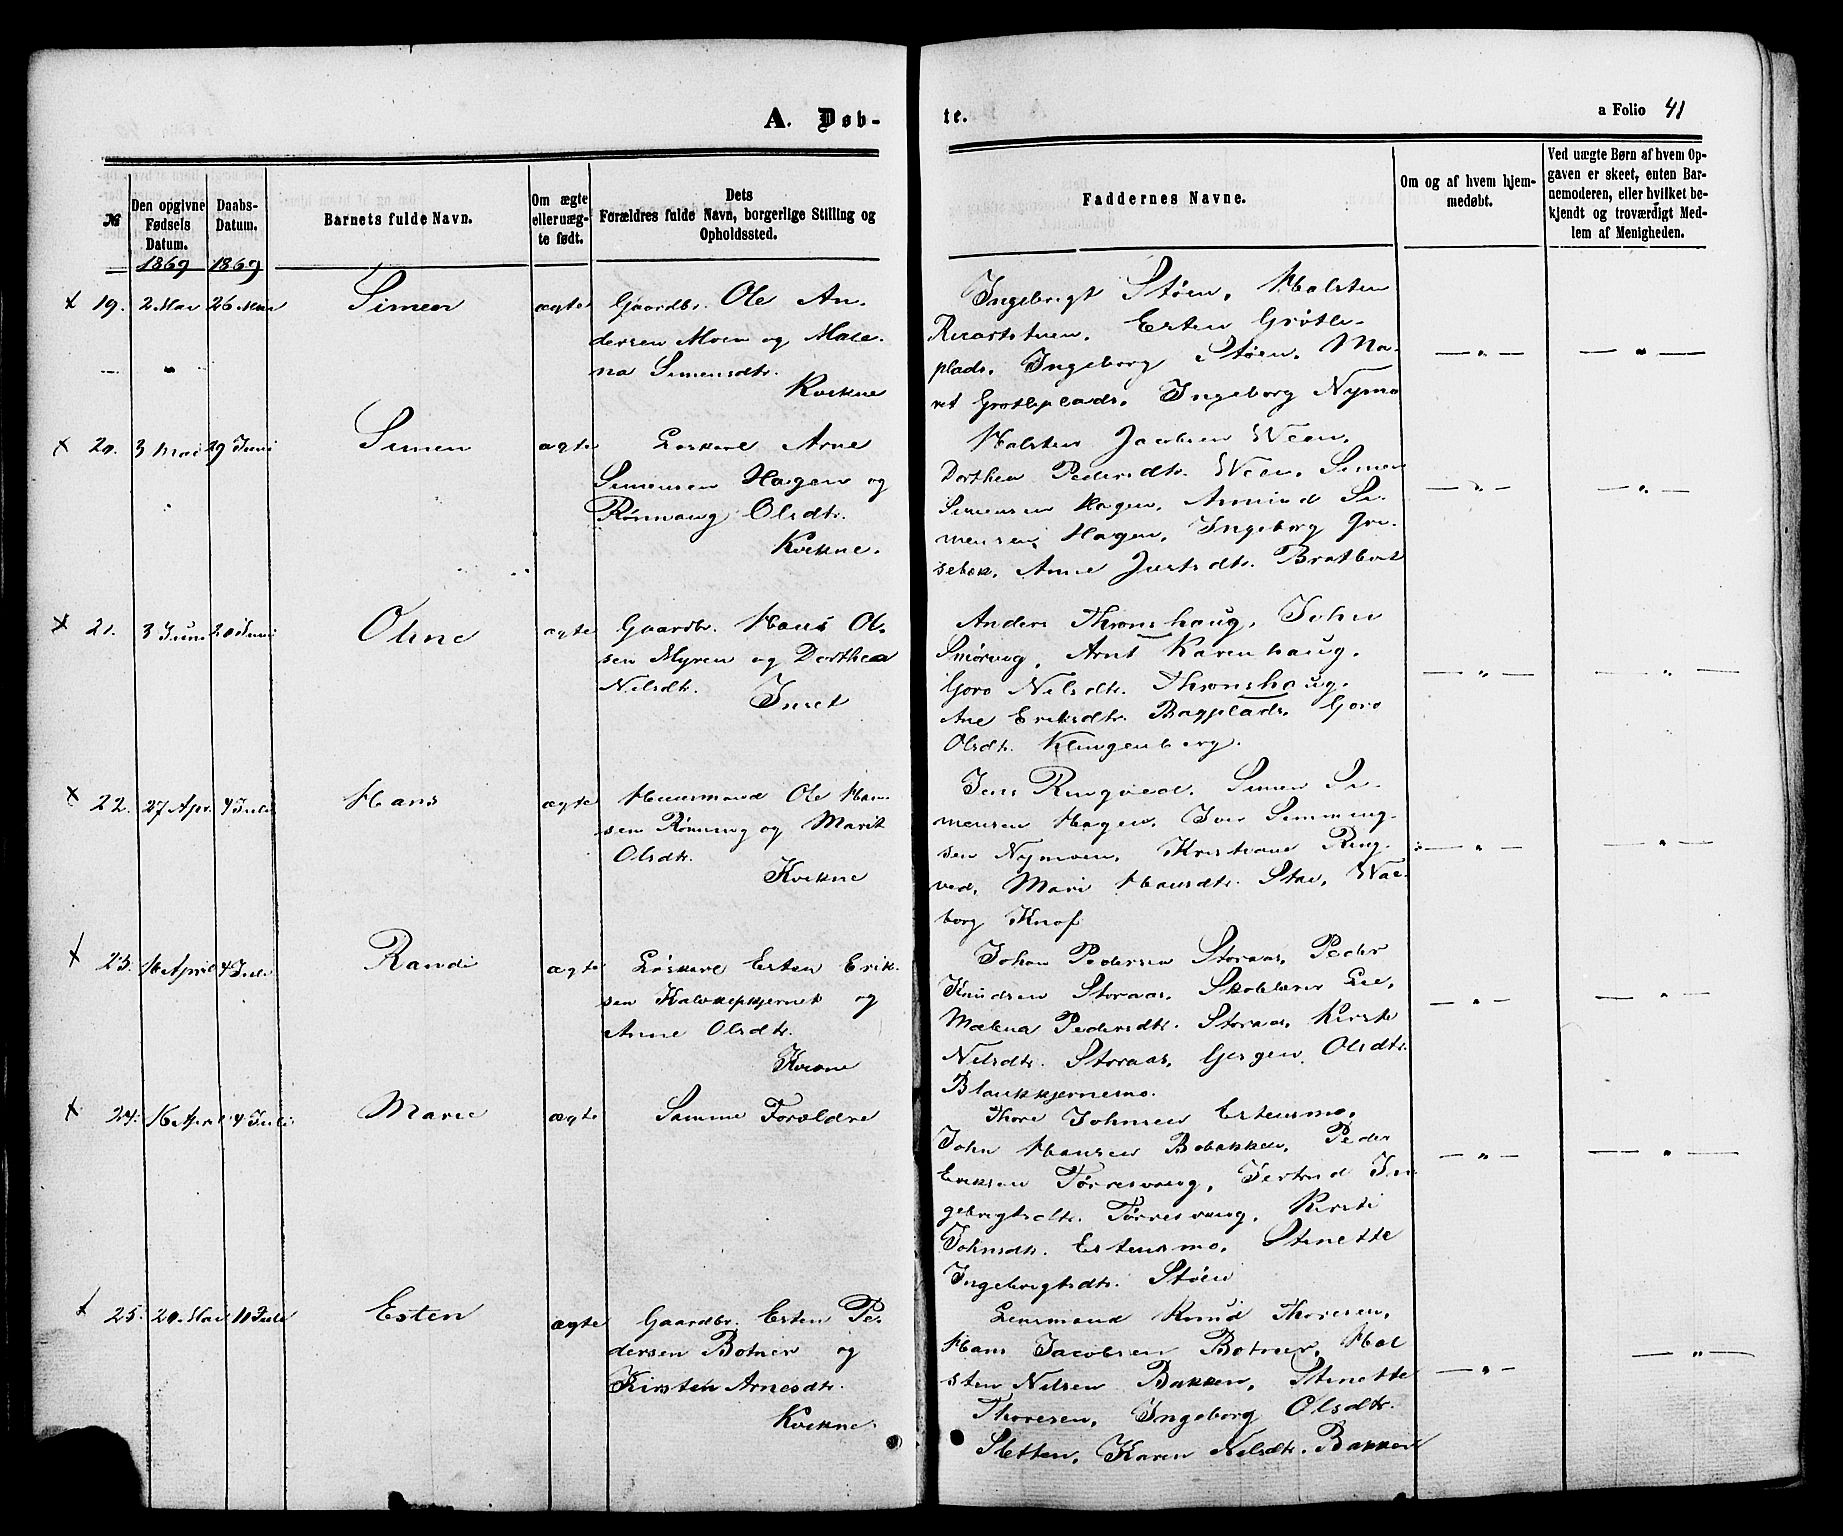 A. Døb-
te.
a Folio 41
№
Den opgivne
Fødsels
Datum.
1869
Daabs-
Datum.
1869
Barnets fulde Navn.
Om ægte
eller uæg-
te født.
Dets
Forældres fulde Navn, borgerlige Stilling og
Opholdssted.
Faddernes Navne.
Om og af hvem hjem-
medøbt.
Ved uægte Børn af hvem Op-
gaven er skeet, enten Bar-
nemoderen, eller hvilket be-
kjendt og troværdigt Med-
lem af Menigheden.
19. 2 Mai 26 Mai Simen ægte
Gaardbr. Ole An-
dersen Moen og Male-
na Simensdtr.
Kvikne
Ingebrigt Støen, Halsten
Esten Grøtli-
plads, Ingeborg Støen, Ma-
rit Grøtliplads, Ingeborg Nymo
20. 3 Mai 29 Juni Simen ægte
Løskarl Arne
Simensen Hagen og
Rønnaug Olsdtr.
Kvikne.
Halsten Jacobsen Ween,
Dorthea Pedersdtr. Ween, Simen
Simensen Hagen, Amund Si-
mensen Hagen, Ingeborg Gru-
sebæk, Anne Justsdtr. Bratbost
21. 3 Juni 20 Juni Oline ægte
Gaardbr. Hans Ol-
sen Myren og Dorthea
Nilsdtr.
Inset
Anders Thronshaug, John
Smørvig, Arnt Karenhaug,
Goro Nilsdtr. Thronshaug,
Ane Eriksdtr. Bagplads, Goro
Olsdtr. Klingenberg.
22. 27 Apr. 4 Juli Hans ægte
Huusmand Ole Han-
sen Rønning og Marit
Olsdtr.
Kvikne
Jens Ringved, Simen Si-
mensen Hagen, Iver Simming-
sen Nymoen, Kristiane Ring-
ved, Mari Hansdtr. Stai, Wal-
borg Knof
23. 16 April 4 Juli Randi ægte
Løskarl Esten Erik-
sen Kaleskepkjernet og
Anne Olsdtr.
Kvikne
Johan Pedersen Storaas, Peder
Knudsen Storaas, Skolelærer Lie,
Malena Pedersdtr. Storaas, Kirsti
Nilsdtr. Storaas, Gjergen Olsdtr.
Blankkjernsmo.
24. 16 April 4 Juli Marie ægte
Samme Forældre
Thore Johnsen Estensmo,
John Hansen Bobakken, Peder
Eriksen Tørresvang, Jertrud In-
gebrigtsdtr. Tørresvang, Kirsti
Johnsdtr. Estensmo, Stinette
Ingebrigtsdtr. Støen
25. 20 Mai 11 Juli Esten ægte
Gaardbr. Esten Pe-
dersen Botner og
Kirsten Arnesdtr.
Kvikne.
Lensmand Knud Thoresen,
Hans Jacobsen Botner, Hal-
sten Nilsen Bakken, Stinette
Thoresen, Ingeborg Olsdtr.
Sletten, Karen Nilsdtr. Bakken